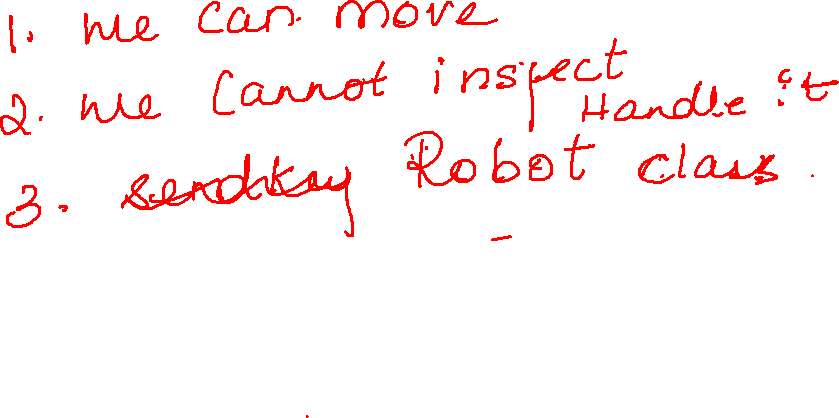 1. We can move
2. We cannot inspect
Handle it
3. sendkey Robot class.